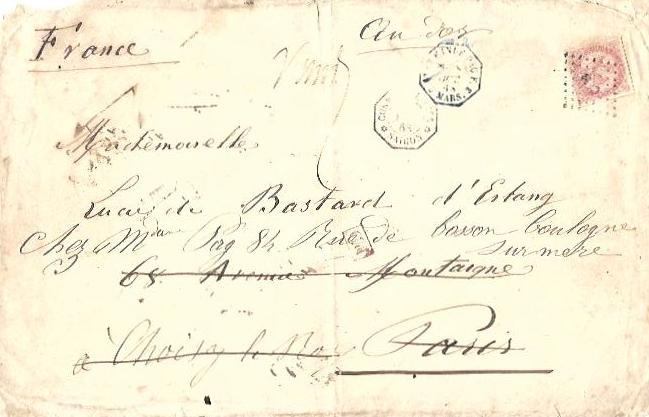 France
Mademoiselle
Lucie de Bastard d'Estang
Chez Mdame Pag 84 Rue de Bosson Boulogne
sur mere
68 Avenue Montaigne
à Choisy le Roy Paris